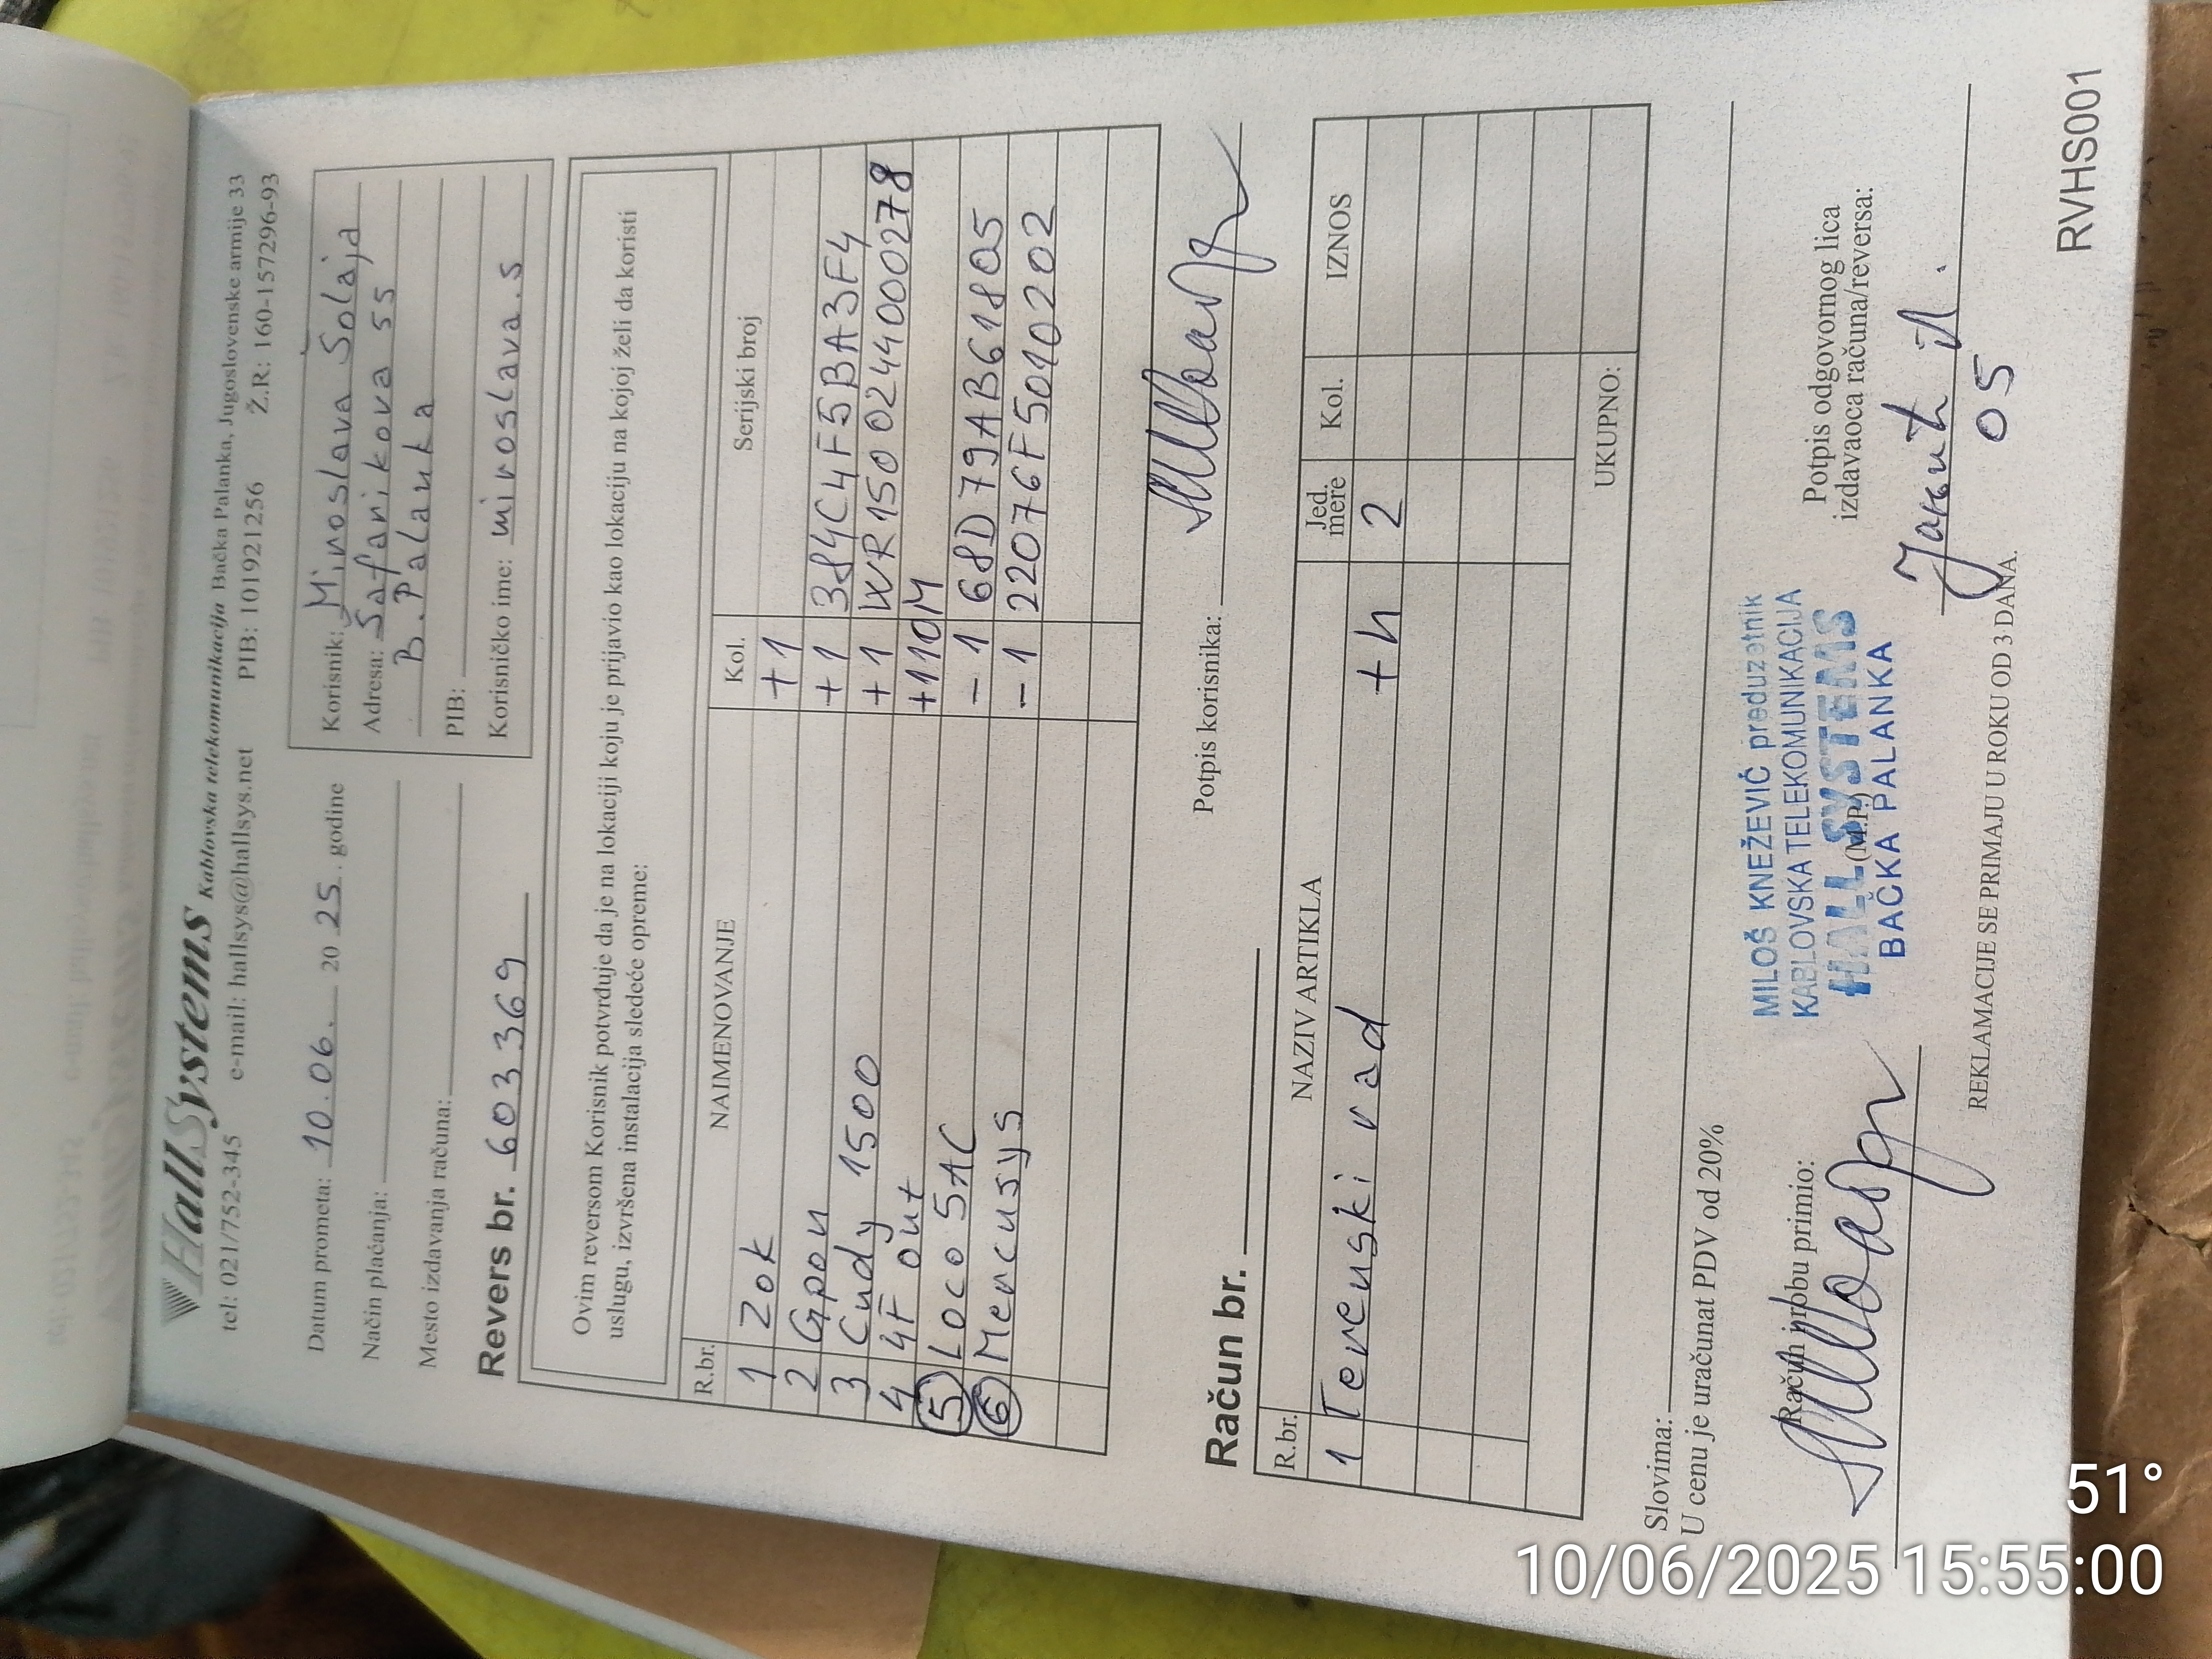 HallSystems Kablovska telekomunikacija Bačka Palanka, Jugoslovenske armije 33
tel: 021/752-345 e-mail: hallsys@hallsys.net PIB: 101921256 Ž.R.: 160-157296-93
Datum prometa: 10.06. 2025. godine
Način plaćanja:
Mesto izdavanja računa:
Revers br. 603369
Korisnik: Miroslava Šolaja
Adresa: Šafarikova 55
B. Palanka
PIB:
Korisničko ime: miroslava.s
Ovim reversom Korisnik potvrđuje da je na lokaciji koju je prijavio kao lokaciju na kojoj želi da koristi
uslugu, izvršena instalacija sledeće opreme:
R.br. NAIMENOVANJE Kol. Serijski broj
1 ZOK +1
2 Gpon +1 384C4F5BA3F4
3 Cudy 1500 +1 WR1500244000278
4 4F out +110M
5 Loco 5AC -1 68D79AB618Q5
6 Mercusys -1 22076F5010202
Potpis korisnika:
Račun br.
R.br. NAZIV ARTIKLA Jed. mere Kol. IZNOS
1 Terenski rad +h 2
UKUPNO:
Slovima:
U cenu je uračunat PDV od 20%
Račun i robu primio:
MILOŠ KNEŽEVIĆ preduzetnik
KABLOVSKA TELEKOMUNIKACIJA
HALL SYSTEMS
(M.P.)
BAČKA PALANKA
Potpis odgovornog lica
izdavaoca računa/reversa:
05
REKLAMACIJE SE PRIMAJU U ROKU OD 3 DANA.
RVHS001
51°
10/06/2025 15:55:00